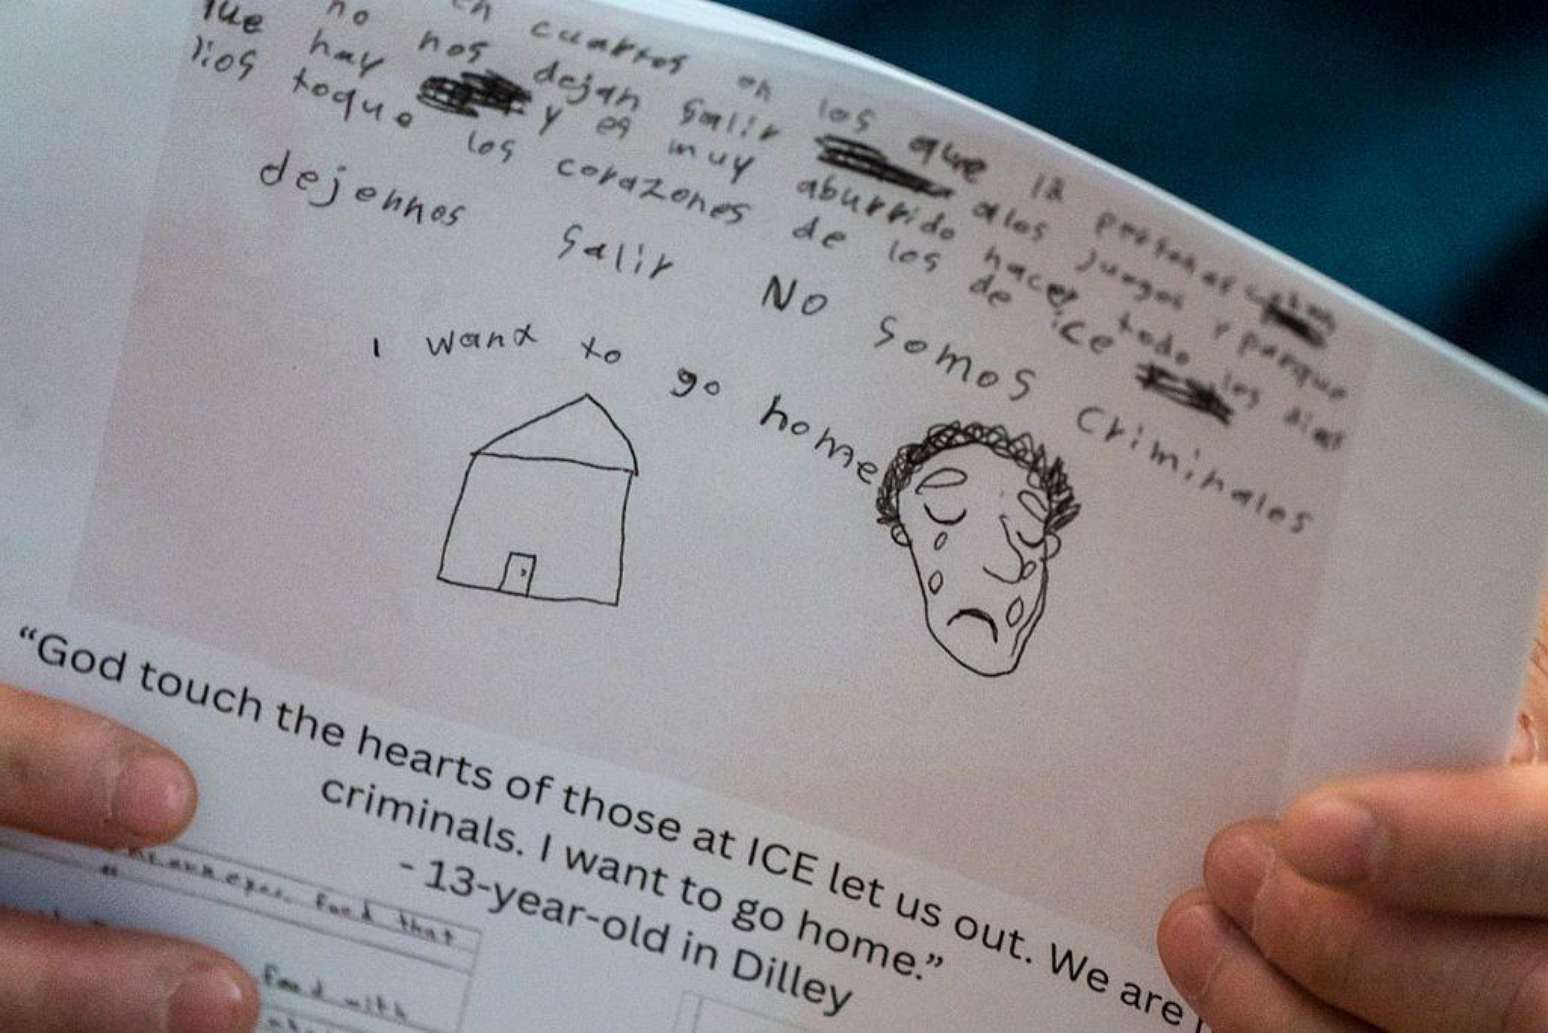 en cuartos en los que la personas
no nos dejan salir alos juegos y porque
que hay y es muy aburrido hacer todo los dias
toque los corazones de los de ice
dejennos salir No somos criminales
I want to go home
“God touch the hearts of those at ICE let us out. We are
criminals. I want to go home.”
- 13-year-old in Dilley
Food that
Food with